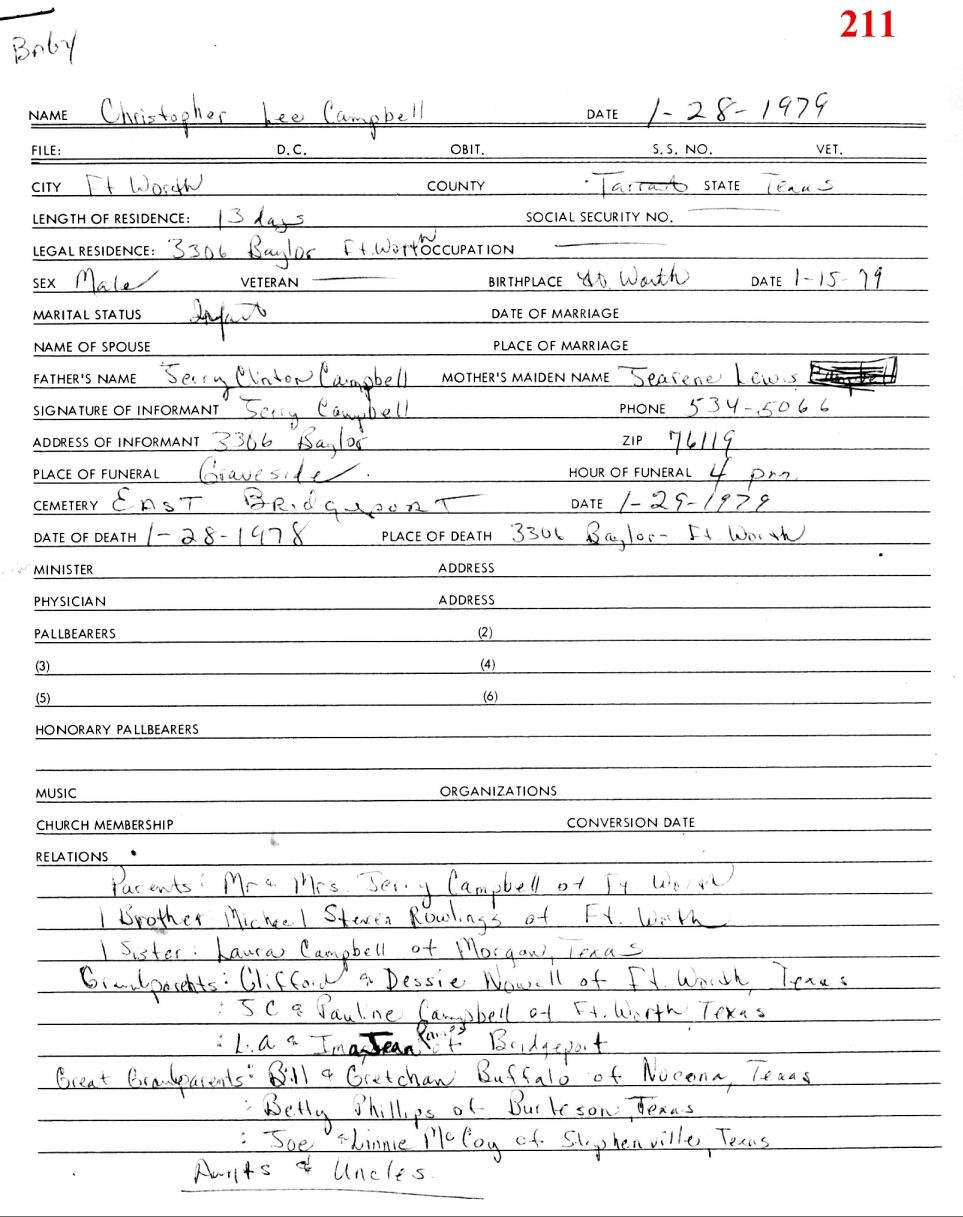 211
Baby
NAME Christopher Lee Campbell DATE 1-28-1979
FILE: D.C. OBIT. S.S. NO. VET.
CITY Ft Worth COUNTY Tarrant STATE Texas
LENGTH OF RESIDENCE: 13 days SOCIAL SECURITY NO.
LEGAL RESIDENCE: 3306 Baylor Ft. Worth OCCUPATION
SEX Male VETERAN BIRTHPLACE Ft. Worth DATE 1-15-79
MARITAL STATUS Infant DATE OF MARRIAGE
NAME OF SPOUSE PLACE OF MARRIAGE
FATHER'S NAME Jerry Clinton Campbell MOTHER'S MAIDEN NAME Jearene Lewis
SIGNATURE OF INFORMANT Jerry Campbell PHONE 534-5066
ADDRESS OF INFORMANT 3306 Baylor ZIP 76119
PLACE OF FUNERAL Graveside HOUR OF FUNERAL 4 pm
CEMETERY EAST BRidgeport DATE 1-29-1979
DATE OF DEATH 1-28-1978 PLACE OF DEATH 3306 Baylor - Ft. Worth
MINISTER ADDRESS
PHYSICIAN ADDRESS
PALLBEARERS (2)
(3) (4)
(5) (6)
HONORARY PALLBEARERS
MUSIC ORGANIZATIONS
CHURCH MEMBERSHIP CONVERSION DATE
RELATIONS
Parents: Mr & Mrs. Jerry Campbell of Ft Worth
1 Brother Michael Steven Rowlings of Ft. Worth
1 Sister: Laura Campbell of Morgan, Texas
Grandparents: Clifford & Dessie Nowell of Ft. Worth, Texas
: J C & Pauline Campbell of Ft. Worth Texas
: L.A & Ima Jean of Bridgeport
Great Grandparents: Bill & Gretchan Buffalo of Nocona, Texas
: Betty Phillips of Burleson, Texas
: Joe & Linnie McCoy of Stephenville, Texas
Aunts & Uncles.